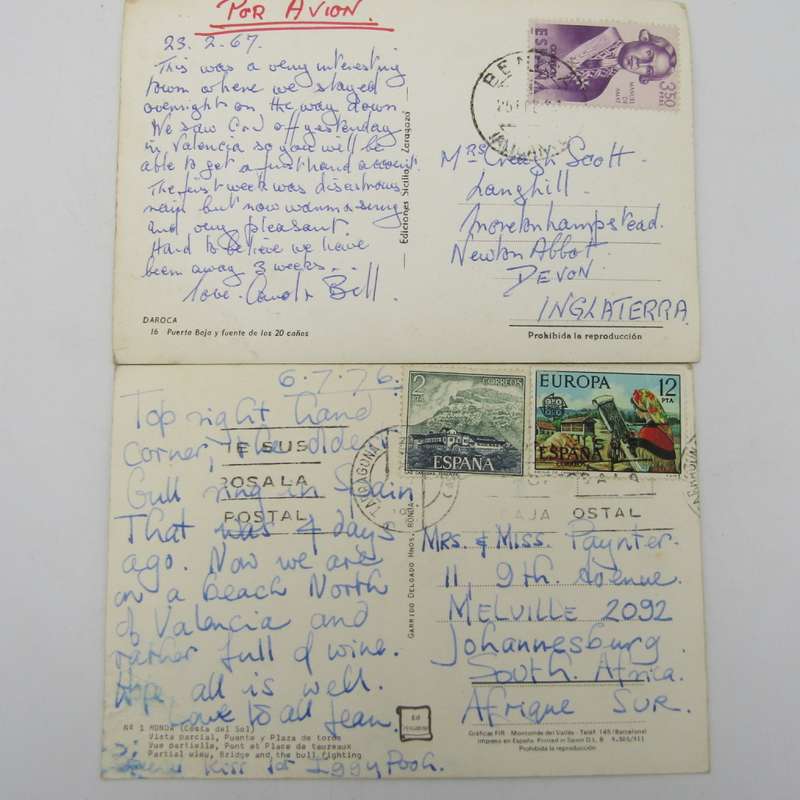 POR AVION.
23.2.67.
This was a very interesting
town where we stayed
overnight on the way down.
We saw off yesterday
in Valencia so you will be
able to get a first hand account.
The first week was disastrous
rain but now warm & sunny
and very pleasant.
Hard to believe we have
been away 3 weeks...
love. Bell.
DAROCA
16 Puerta Baja y fuente de los 20 caños
Ediciones Sicilia - Zaragoza
CORREOS
ESPAÑA
MANUEL DE AMAT
3'50
PTAS
Mrs Creagh Scott.
Langhill.
Moretonhampstead.
Newton Abbot.
DEVON.
INGLATERRA
Prohibida la reproducción
6.7.76.
Top right hand
corner, the oldest
Bull ring in Spain
That was 4 days
ago. Now we are
on a beach North
of Valencia and
rather full of wine.
Hope all is well.
Love to all Jean.
kiss for Iggy Pooh.
E SUS
POSTAL
Nº 1 RONDA (Costa del Sol)
Vista parcial, Puente y Plaza de toros
Vue partielle, Pont et Place de taureaux
Partial wiew, Bridge and the bull fighting
GARRIDO DELGADO HNOS. RONDA
2 PTA
CORREOS
ESPAÑA
EUROPA
12
PTA
ESPAÑA
CORREOS
TARRAGONA
OSTAL
MRS. & MISS. Paynter.
11, 9th. Avenue.
MELVILLE 2092
Johannesburg.
South Africa.
Afrique SUR.
Gráficas FIR - Montornés del Vallés - Teléf. 145 (Barcelona)
Impreso en España. Printed in Spain D.L. B
Prohibida la reproducción